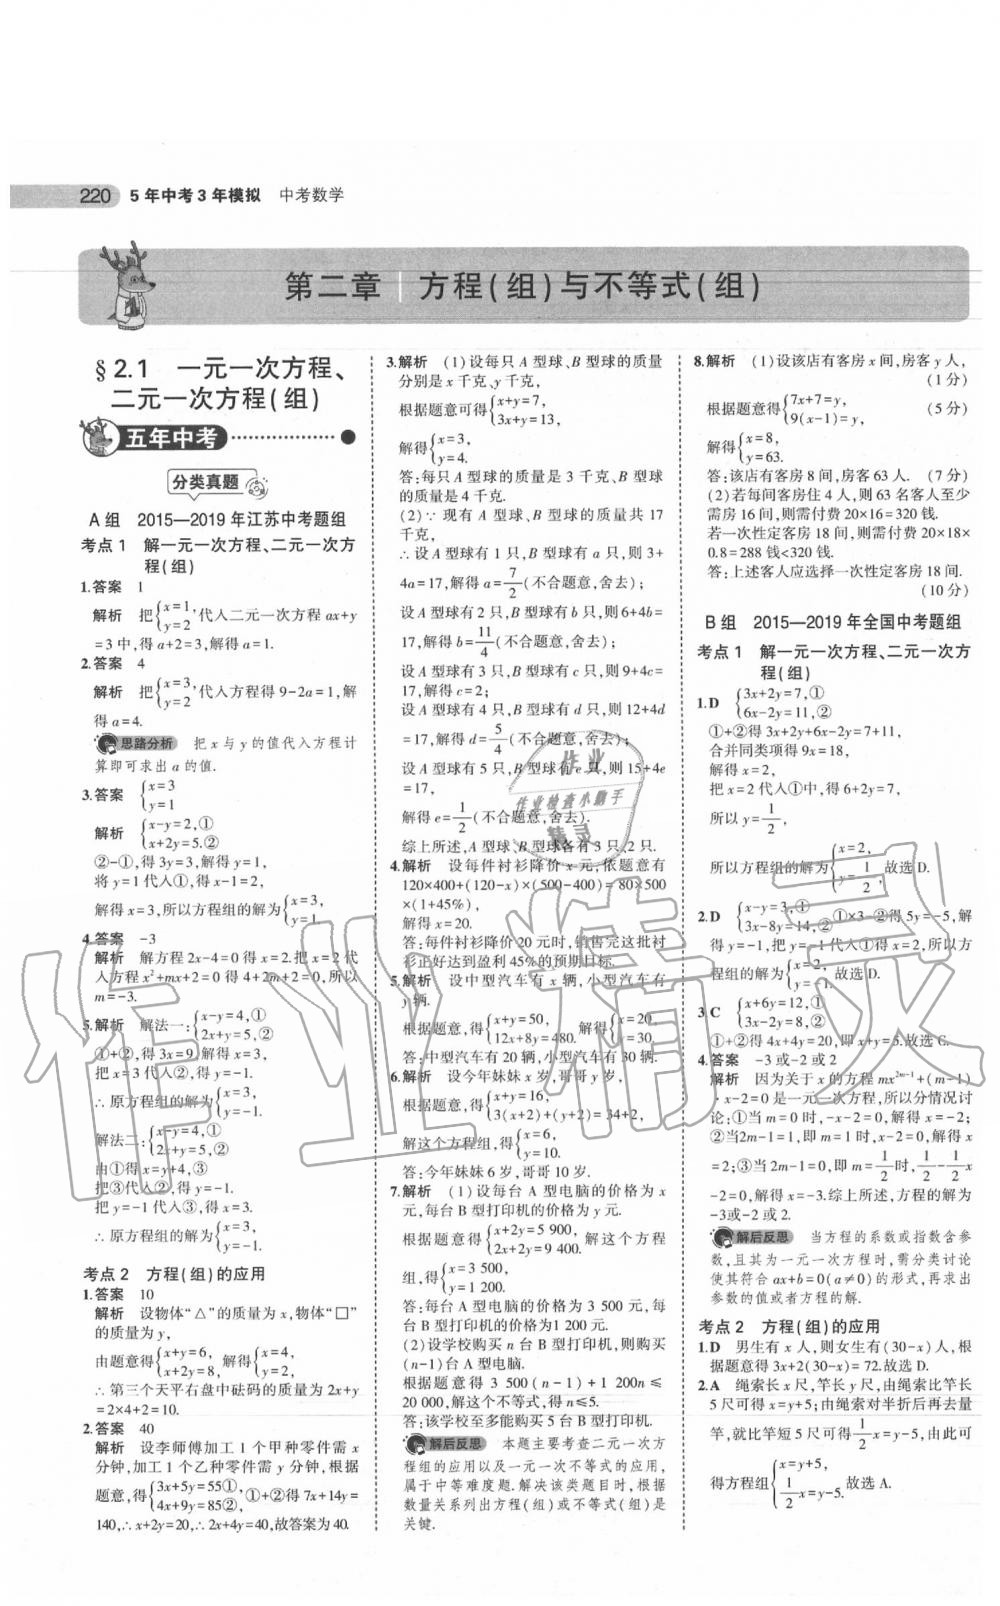 220 5年中考3年模拟 中考数学
第二章 方程(组)与不等式(组)
§2.1 一元一次方程、
二元一次方程(组)
五年中考
分类真题
A组 2015—2019年江苏中考题组
考点1 解一元一次方程、二元一次方
程(组)
1.答案 1
解析 把{x=1, y=2,代入二元一次方程ax+y
=3中,得a+2=3,解得a=1.
2.答案 4
解析 把{x=3, y=2,代入方程得9-2a=1,解
得a=4.
思路分析 把x与y的值代入方程计
算即可求出a的值.
3.答案 {x=3 y=1
解析 {x-y=2,① x+2y=5.②
②-①,得3y=3,解得y=1,
将y=1代入①,得x-1=2,
解得x=3,所以方程组的解为{x=3, y=1.
4.答案 -3
解析 解方程2x-4=0得x=2.把x=2代
入方程x²+mx+2=0得4+2m+2=0,所以
m=-3.
5.解析 解法一:{x-y=4,① 2x+y=5,②
①+②,得3x=9.解得x=3,
把x=3代入②,得y=-1.
∴原方程组的解为{x=3, y=-1.
解法二:{x-y=4,① 2x+y=5,②
由①得x=y+4,③
把③代入②,得y=-1.
把y=-1代入③,得x=3,
∴原方程组的解为{x=3, y=-1.
考点2 方程(组)的应用
1.答案 10
解析 设物体“△”的质量为x,物体“□”
的质量为y,
由题意得{x+y=6, x+2y=8,解得{x=4, y=2,
∴第三个天平右盘中砝码的质量为2x+y
=2×4+2=10.
2.答案 40
解析 设李师傅加工1个甲种零件需x
分钟,加工1个乙种零件需y分钟,根据
题意,得{3x+5y=55①, 4x+9y=85②,①+②得7x+14y=
140,∴x+2y=20,∴2x+4y=40,故答案为40.
3.解析 (1)设每只A型球、B型球的质量
分别是x千克、y千克,
根据题意可得{x+y=7, 3x+y=13,
解得{x=3, y=4.
答:每只A型球的质量是3千克、B型球
的质量是4千克.
(2)∵现有A型球、B型球的质量共17
千克,
∴设A型球有1只,B型球有a只,则3+
4a=17,解得a=7/2(不合题意,舍去);
设A型球有2只,B型球有b只,则6+4b=
17,解得b=11/4(不合题意,舍去);
设A型球有3只,B型球有c只,则9+4c=
17,解得c=2;
设A型球有4只,B型球有d只,则12+4d
=17,解得d=5/4(不合题意,舍去);
设A型球有5只,B型球有e只,则15+4e
=17,
解得e=1/2(不合题意,舍去).
综上所述,A型球、B型球各有3只、2只.
4.解析 设每件衬衫降价x元,依题意有
120×400+(120-x)×(500-400)=80×500
×(1+45%),
解得x=20.
答:每件衬衫降价20元时,销售完这批衬
衫正好达到盈利45%的预期目标.
5.解析 设中型汽车有x辆,小型汽车有
y辆.
根据题意,得{x+y=50, 12x+8y=480. 解得{x=20, y=30.
答:中型汽车有20辆,小型汽车有30辆.
6.解析 设今年妹妹x岁,哥哥y岁,
根据题意,得{x+y=16, 3(x+2)+(y+2)=34+2,
解这个方程组,得{x=6, y=10.
答:今年妹妹6岁,哥哥10岁.
7.解析 (1)设每台A型电脑的价格为x
元,每台B型打印机的价格为y元.
根据题意,得{x+2y=5 900, 2x+2y=9 400.解这个方程
组,得{x=3 500, y=1 200.
答:每台A型电脑的价格为3 500元,
每台B型打印机的价格为1 200元.
(2)设学校购买n台B型打印机,则购买
(n-1)台A型电脑.
根据题意,得3 500(n-1)+1 200n≤
20 000,解这个不等式,得n≤5.
答:该学校至多能购买5台B型打印机.
解后反思 本题主要考查二元一次方
程组的应用以及一元一次不等式的应用,
属于中等难度题.解决该类题目时,根据
数量关系列出方程(组)或不等式(组)是
关键.
8.解析 (1)设该店有客房x间,房客y人,
(1分)
根据题意得{7x+7=y, 9(x-1)=y. (5分)
解得{x=8, y=63.
答:该店有客房8间,房客63人. (7分)
(2)若每间客房住4人,则63名客人至少
需房16间,则需付费20×16=320钱.
若一次性定客房18间,则需付费20×18×
0.8=288钱<320钱.
答:上述客人应选择一次性定客房18间.
(10分)
B组 2015—2019年全国中考题组
考点1 解一元一次方程、二元一次方
程(组)
1.D {3x+2y=7,① 6x-2y=11,②
①+②得3x+2y+6x-2y=7+11,
合并同类项得9x=18,
解得x=2,
把x=2代入①得6+2y=7,
所以y=1/2,
所以方程组的解为{x=2, y=1/2,故选D.
2.D {x-y=3,① 3x-8y=14,②①×3-②得5y=-5,解
得y=-1,把y=-1代入①得x=2,所以方
程组的解为{x=2, y=-1,故选D.
3.C {x+6y=12,① 3x-2y=8,②
①+②得4x+4y=20,即x+y=5.故选C.
4.答案 -3或-2或2
解析 因为关于x的方程mx²ᵐ⁻¹+(m-1)
·x-2=0是一元一次方程,所以分情况讨
论:①当m=0时,-x-2=0,解得x=-2;
②当2m-1=1,即m=1时,x-2=0,解得x
=2;③当2m-1=0,即m=1/2时,1/2-1/2x
-2=0,解得x=-3.综上所述,方程的解为
-3或-2或2.
解后反思 当方程的系数或指数含参
数,且其为一元一次方程时,需分类讨论
使其符合ax+b=0(a≠0)的形式,再求出
参数的值或者方程的解.
考点2 方程(组)的应用
1.D 男生有x人,则女生有(30-x)人,根
据题意得3x+2(30-x)=72.故选D.
2.A 绳索长x尺,竿长y尺,由绳索比竿长
5尺可得x=y+5;由绳索对半折后再去量
竿,就比竿短5尺可得1/2x=y-5.由此可
得方程组{x=y+5, 1/2x=y-5.故选A.
作业
作业检查小助手
精灵
作业精灵